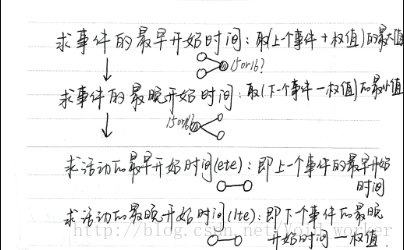 求事件的最早开始时间:取(上个事件+权值)的最大值
15or16?
求事件的最晚开始时间:取(下一个事件-权值)的最小值
15or16?
求活动的最早开始时间(ete):即上一个事件的最早开始
时间
求活动的最晚开始时间(lte):即下个事件的最晚
开始时间-权值